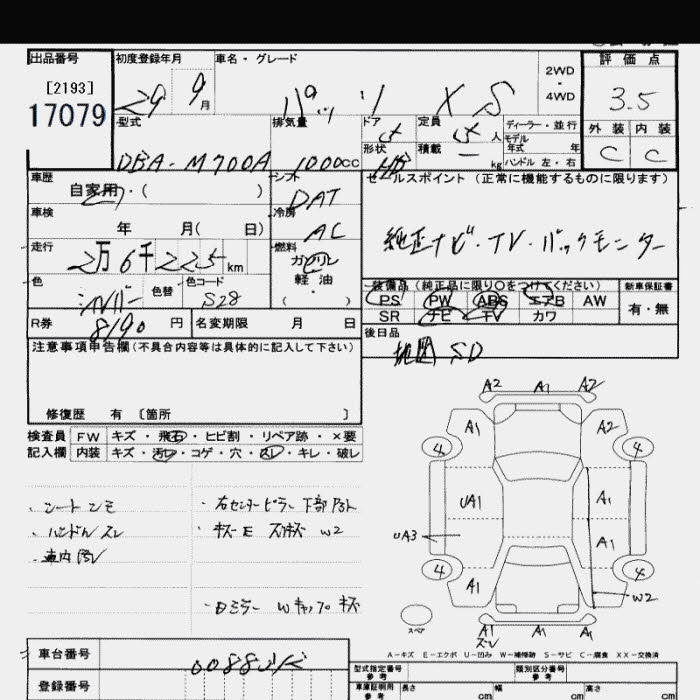 出品番号
[2193]
17079
初度登録年月
29 9月
車名・グレード
パッソ X S
2WD
・
4WD
評価点
3.5
外装 内装
C C
型式
DBA-M700A
排気量
1000cc
ドア
5
定員
5人
形状
HB
積載
― kg
ディーラー・並行
モデル
年式 年
ハンドル 左・右
車歴
自家用・( )
シフト
DAT
セールスポイント (正常に機能するものに限ります)
純正ナビ・TV・バックモニター
車検
年 月( 日)
冷房
AC
走行
2万6千225km
燃料
ガソリン
軽油
( ・ )
色
シルバー
色替
色コード
S28
装備品(純正品に限り○をつけてください)
PS PW ABS エアB AW
SR ナビ TV カワ
新車保証書
有・無
R券
8190円
名変期限 月 日
後日品
地図 SD
注意事項申告欄(不具合内容等は具体的に記入して下さい)
修復歴 有 〔箇所 〕
検査員
記入欄
FW キズ・飛石・ヒビ割・リペア跡・×要
内装 キズ・汚レ・コゲ・穴・スレ・キレ・破レ
・シートシミ
・ハンドルスレ
・車内汚レ
・右センターピラー下部
・キズE W2
・Dミラー Wキャップ キズ
A2 A1 A2
A1 A2
4 4
UA1 A1
UA3 A1
4 4
A1 W2
スペア
A1 A1 A1
スレ
A-キズ E-エクボ U-凹み W-補修跡 S-サビ C-腐食 XX-交換済
車台番号
登録番号
型式指定番号
参考
類別区分番号
参考
車庫証明用
参考
長さ cm
幅 cm
高さ cm